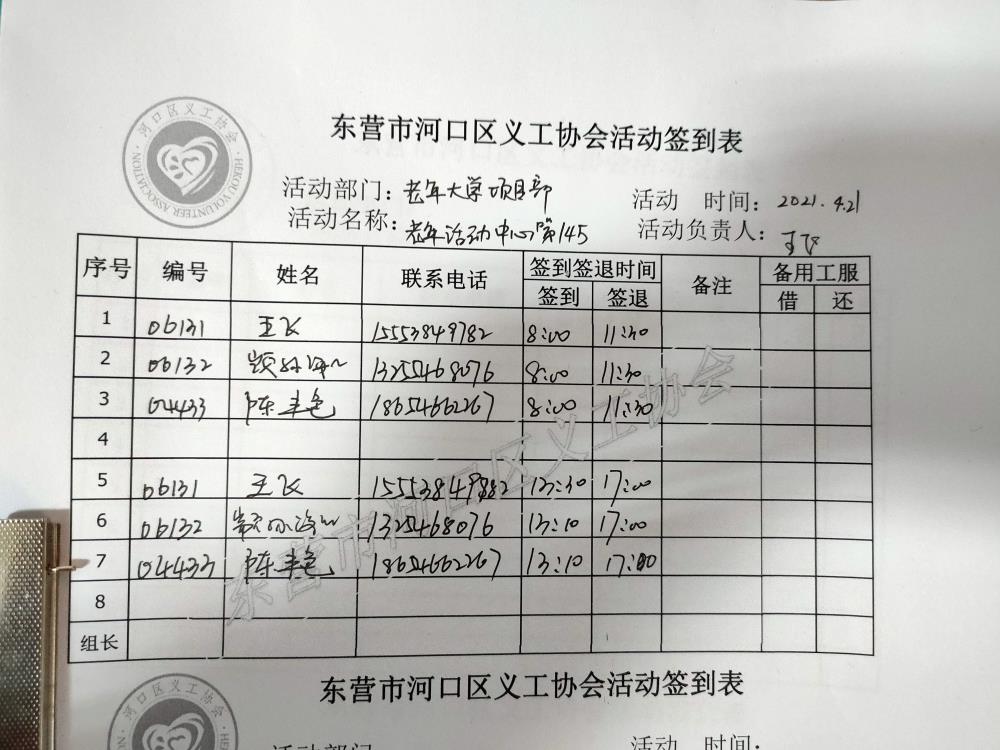 河口区义工协会
HEKOU VOLUNTEER ASSOCIATION
东营市河口区义工协会活动签到表
活动部门：老年大学项目部 活动 时间：2021.4.21
活动名称：老年活动中心第145 活动负责人：王飞
序号 编号 姓名 联系电话 签到签退时间 备注 备用工服
签到 签退 借 还
1 06131 王飞 15553849782 8:00 11:30
2 06132 13255468076 8:00 11:30
3 04433 陈丰色 18654662267 8:00 11:30
4
5 06131 王飞 15553849782 13:30 17:00
6 06132 1325468076 13:10 17:00
7 04433 陈丰色 18654662267 13:10 17:00
8
组长
东营市河口区义工协会
河口区义工协会
东营市河口区义工协会活动签到表
活动部门 活动 时间：